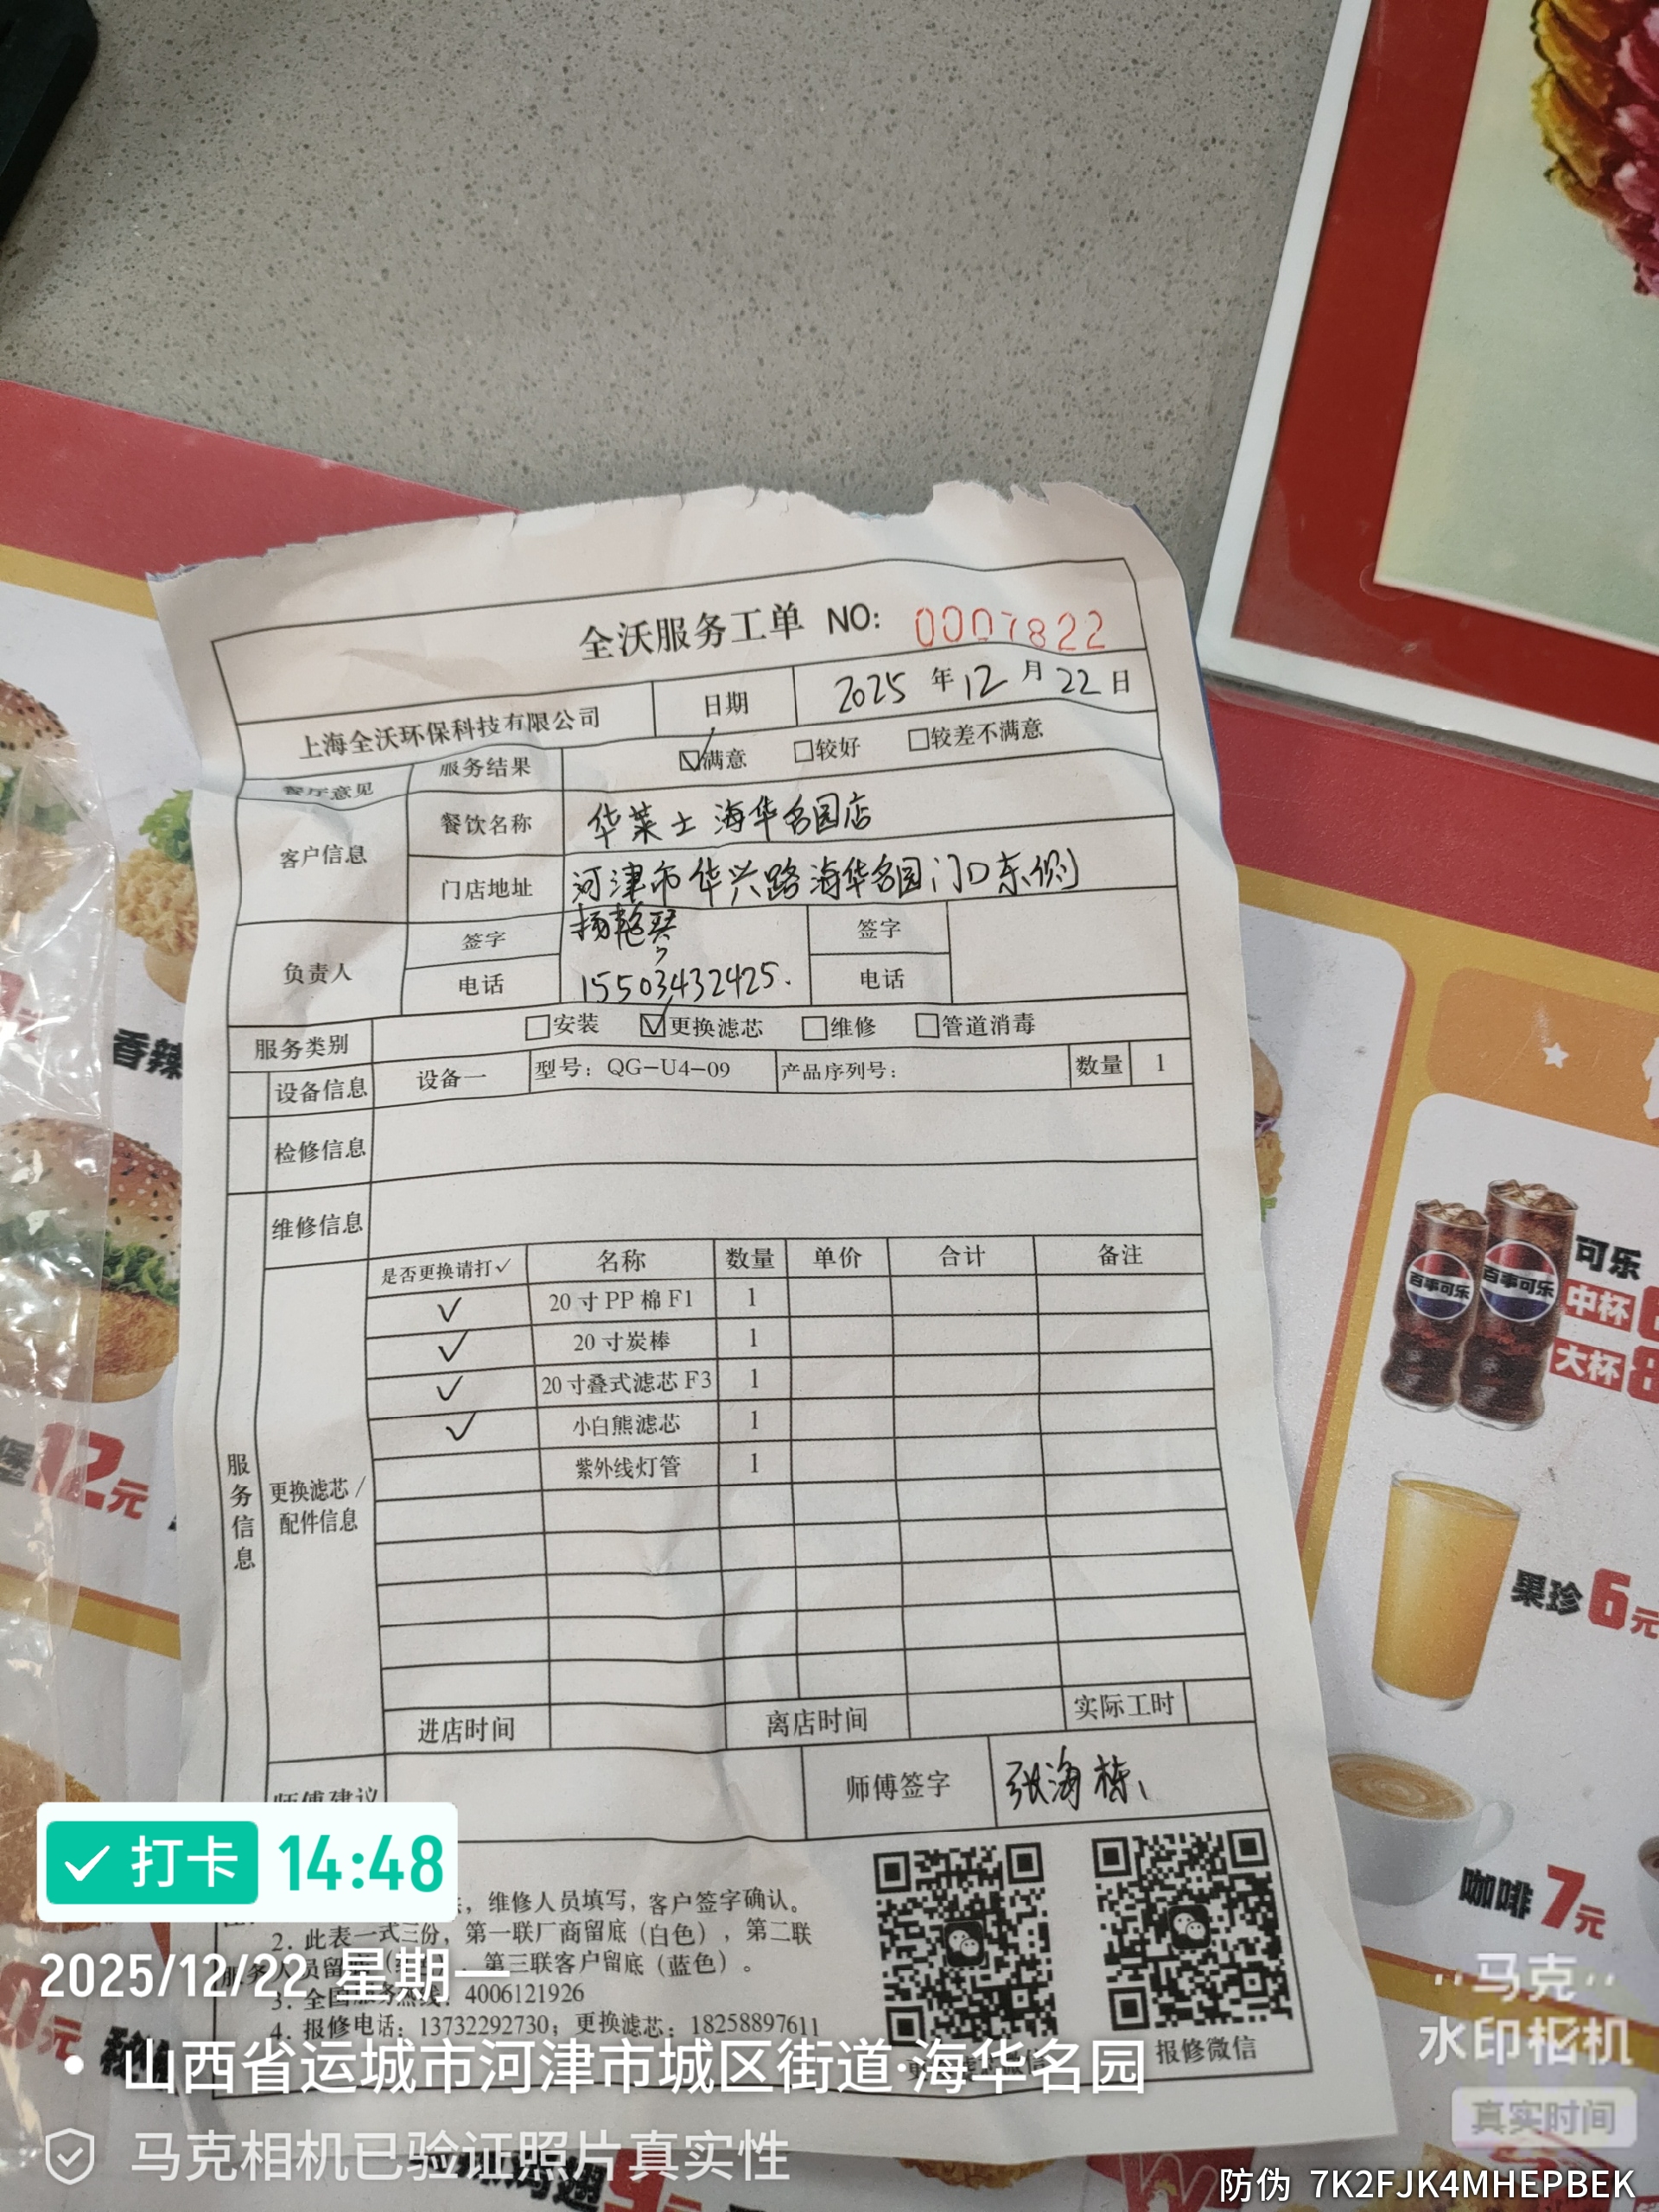 全沃服务工单 NO: 0007822
上海全沃环保科技有限公司 日期 2025 年 12 月 22 日
餐厅意见 服务结果 ☑满意 □较好 □较差不满意
客户信息 餐饮名称 华莱士海华名园店
门店地址 河津市华兴路海华名园门口东侧
负责人 签字 签字
电话 15503432425. 电话
服务类别 □安装 ☑更换滤芯 □维修 □管道消毒
设备信息 设备一 型号：QG-U4-09 产品序列号： 数量 1
检修信息
维修信息
服务信息
更换滤芯/配件信息
是否更换请打✓ 名称 数量 单价 合计 备注
✓ 20寸PP棉F1 1
✓ 20寸炭棒 1
✓ 20寸叠式滤芯F3 1
✓ 小白熊滤芯 1
紫外线灯管 1
进店时间 离店时间 实际工时
师傅建议 师傅签字 张海栋
，维修人员填写，客户签字确认。
2. 此表一式三份，第一联厂商留底（白色），第二联
服务人员留底 ，第三联客户留底（蓝色）。
3. 全国服务热线：4006121926
4. 报修电话：13732292730；更换滤芯：18258897611
报修微信
打卡 14:48
2025/12/22 星期一
山西省运城市河津市城区街道·海华名园
马克相机已验证照片真实性
马克
水印相机
真实时间
防伪 7K2FJK4MHEPBEK
香辣
堡12元
元
可乐
中杯
大杯8
百事可乐
百事可乐
果珍6元
咖啡7元